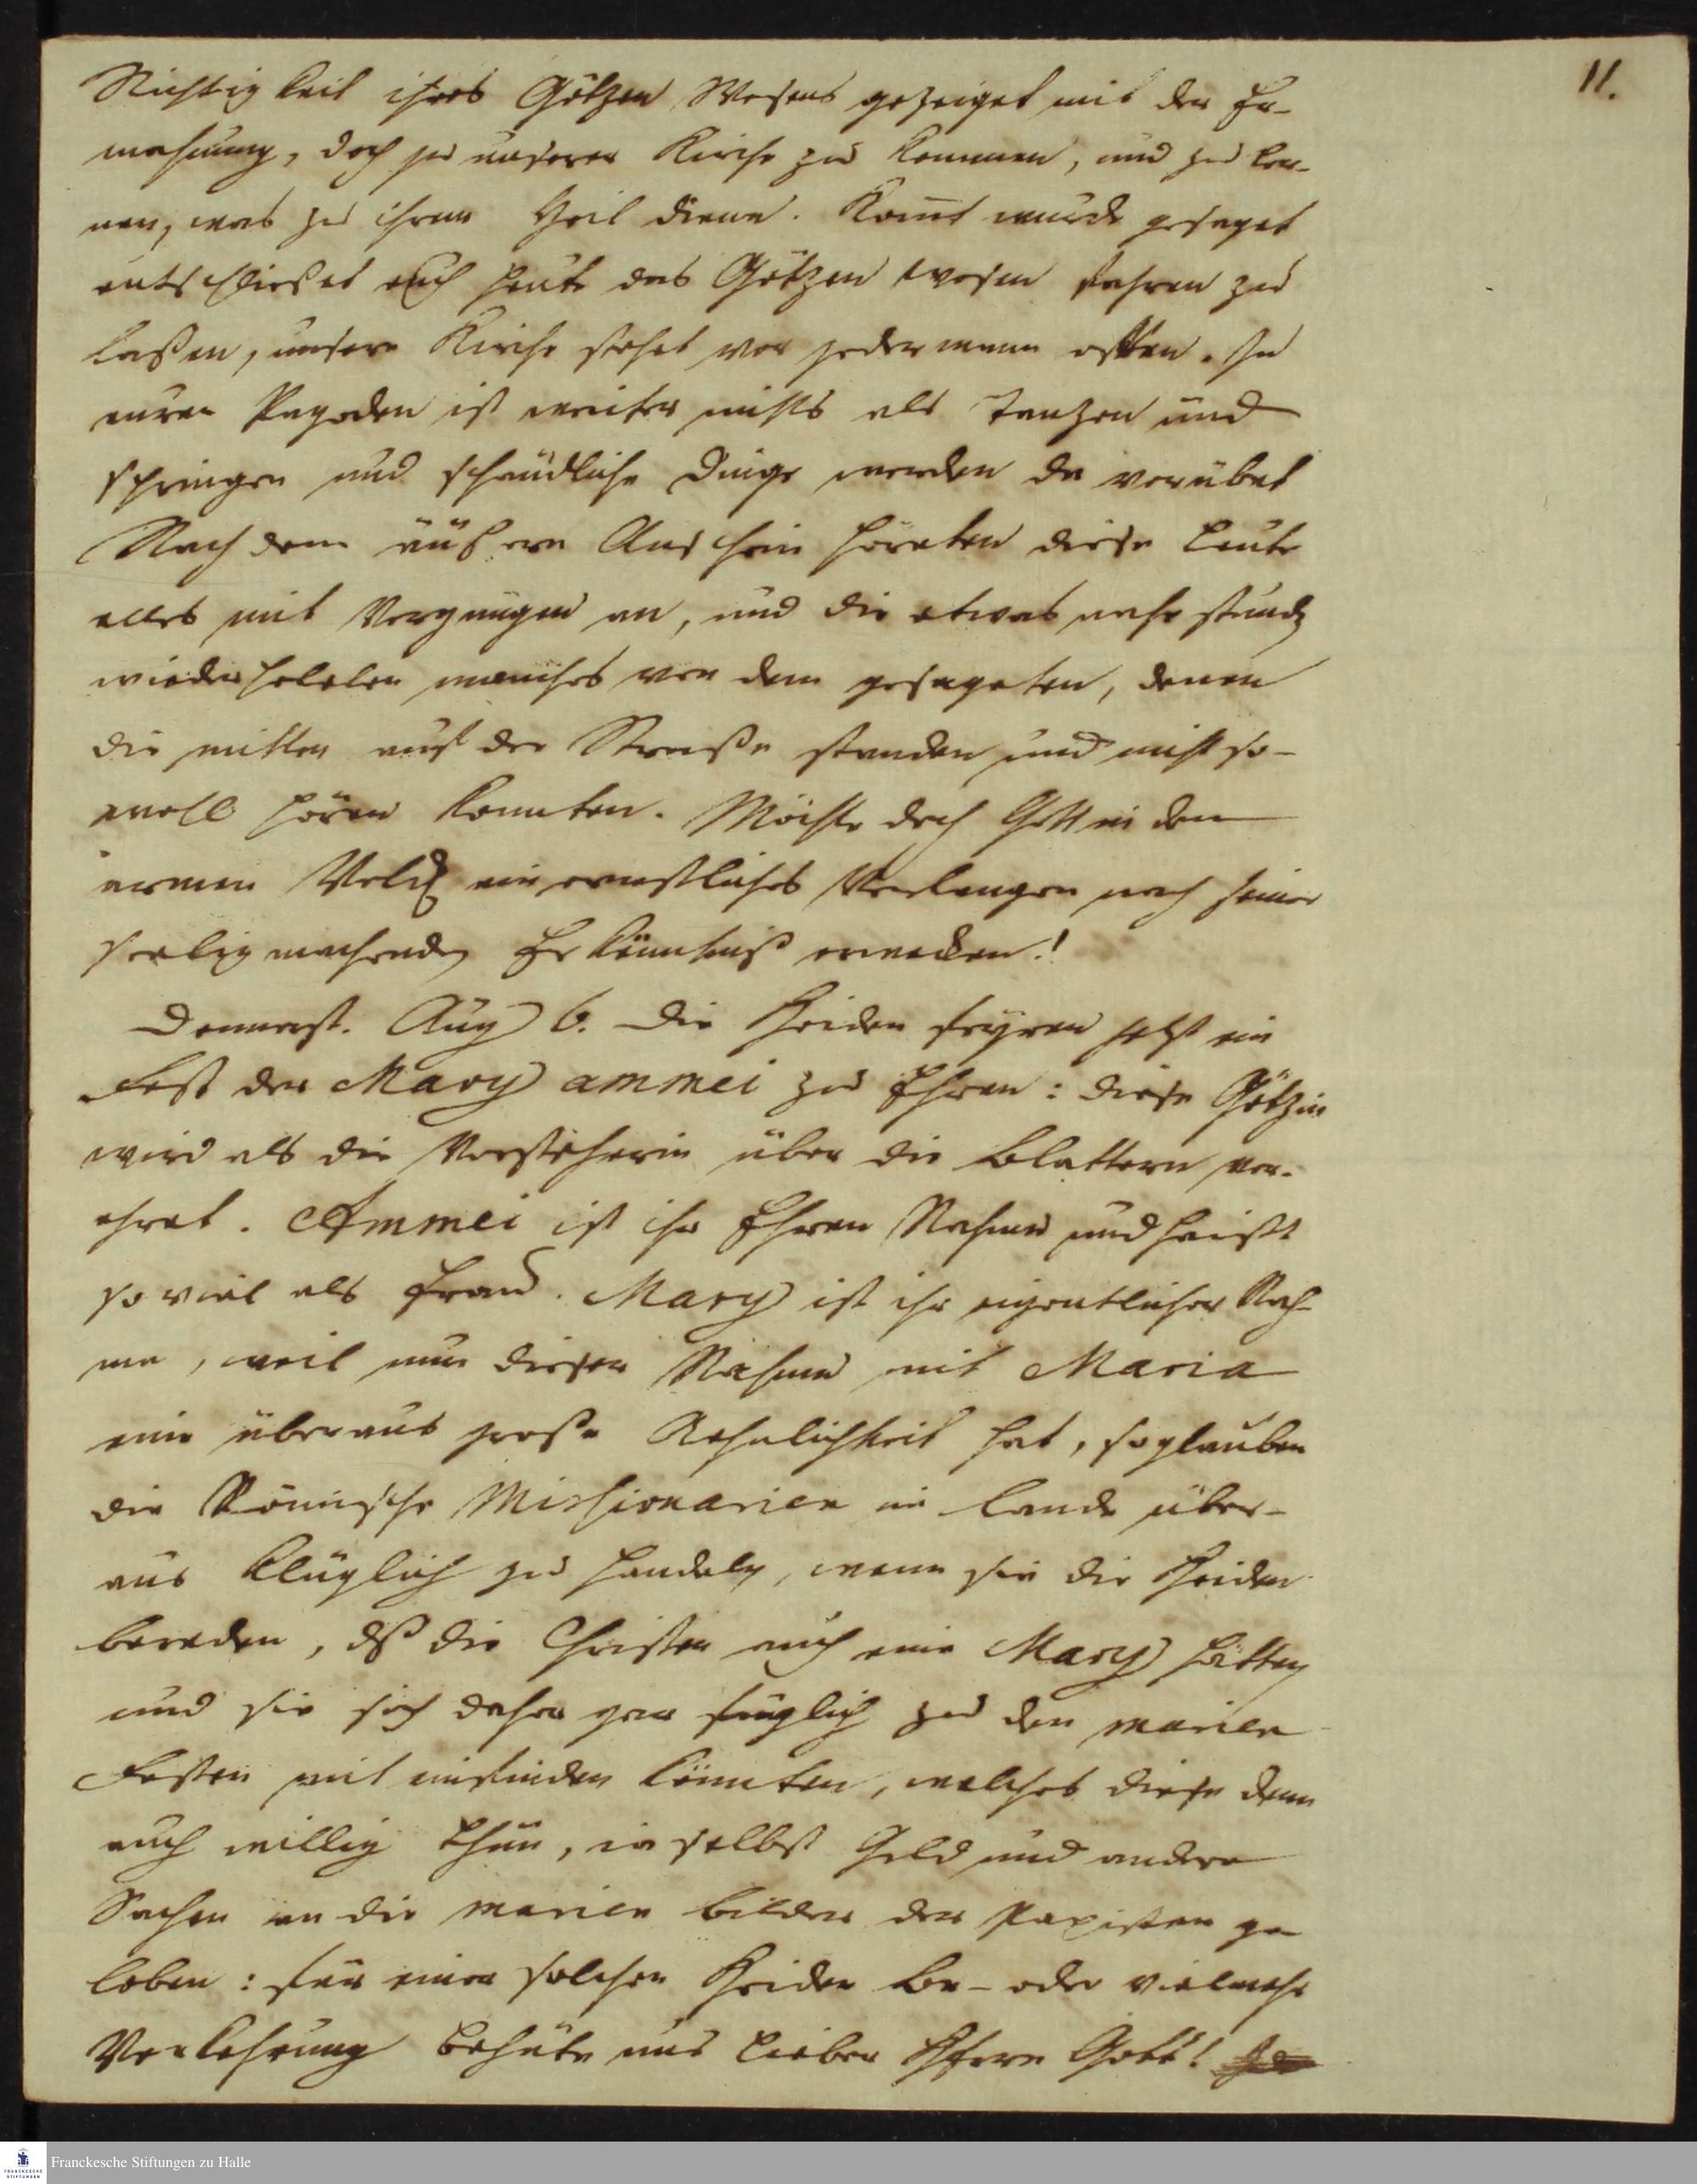 11.
Nichtigkeit ihres Götzen Wesens gezeiget mit der Er-
mahnung, doch zu unserer Kirche zu kommen, und zu ler-
nen, was zu ihrem Heil diene. Kom̄t wurde gesaget
entschließet euch heute das Götzen wesen fahren zu
laßen, unsere Kirche stehet vor jedermann offen. In
euren Pagoden ist weiter nichts als Tanzen und
springen und schändliche Dinge werden da verübet
Nach dem äüßern Anschein höreten diese Leute
alles mit Vergnügen an, und die etwas nahe stunden
wiederholeten manches von dem gesageten, denen
die mitten auf der Straße standen und nicht so-
wohl hören konnten. Möchte doch Gott in dem
armen Volck ein ernstliches Verlangen nach seiner
seeligmachenden Erkänntniß erwecken!
Donnerst. Aug 6. Die Heiden feyren jetzt ein
Fest der Mary ammei zu Ehren: diese Götzin
wird als die Vorsteherin über die Blattern ver-
ehret. Ammei ist ihr Ehren Nahme und heißt
so viel als Frau. Mary ist ihr eigentlicher Nah-
me, weil nun dieser Nahme mit Maria
eine überaus große Aehnlichkeit hat, so glauben
die Römische Missionarien im Lande über-
aus klüglich zu handeln, wenn sie die Heiden
bereden, dß die Christen auch eine Mary hätten
und sie sich daher gar füglich zu den marien
Festen mit einfinden könnten, welches diese denn
auch willig thun, ja selbst Geld und andere
Sachen an die marien bilder der Papisten ge
loben: für einer solchen Heiden Be- oder vielmehr
Verkehrung behüte uns lieber Herre Gott!